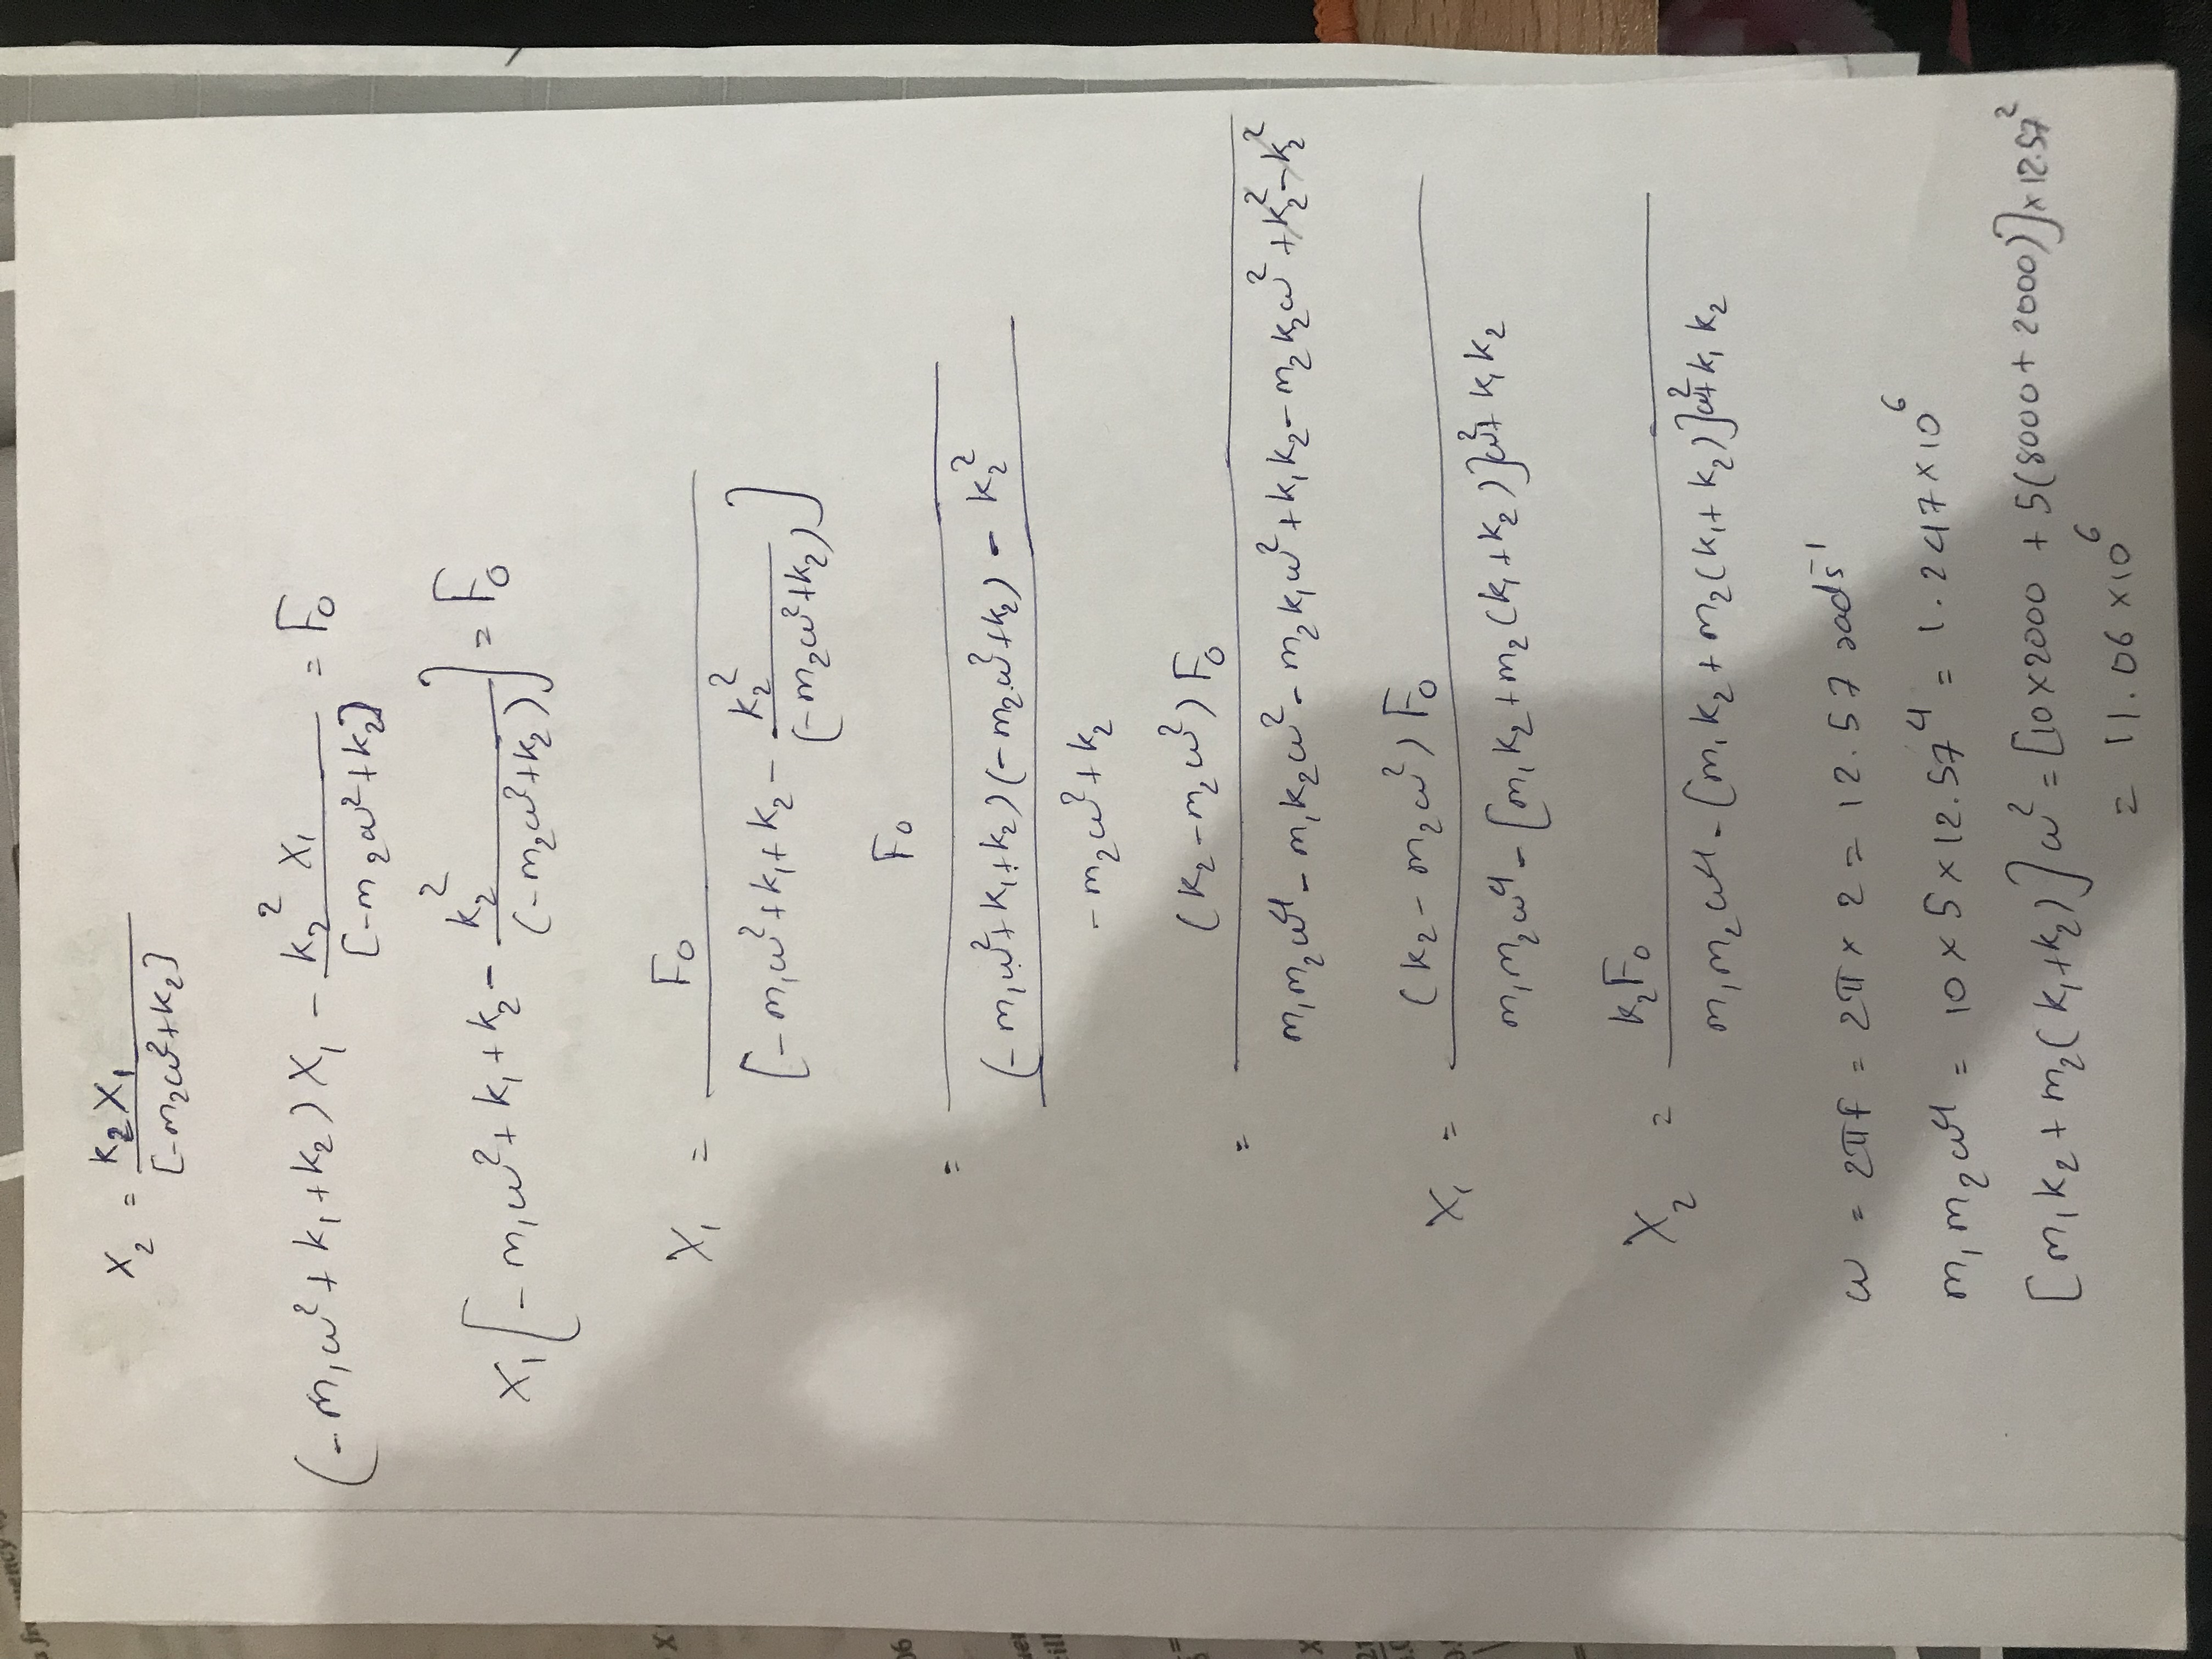 X₂ = k₂X₁ / [-m₂ω²+k₂]
(-m₁ω²+k₁+k₂)X₁ - k₂² X₁ / [-m₂ω²+k₂] = F₀
X₁[-m₁ω²+k₁+k₂- k₂² / (-m₂ω²+k₂)] = F₀
X₁ = F₀ / [-m₁ω²+k₁+k₂- k₂² / (-m₂ω²+k₂)]
= F₀ / ((-m₁ω²+k₁+k₂)(-m₂ω²+k₂) - k₂² / -m₂ω²+k₂)
= (k₂-m₂ω²)F₀ / m₁m₂ω⁴-m₁k₂ω²-m₂k₁ω²+k₁k₂-m₂k₂ω²+k₂²-k₂²
X₁ = (k₂-m₂ω²)F₀ / m₁m₂ω⁴-[m₁k₂+m₂(k₁+k₂)]ω²+k₁k₂
X₂ = k₂F₀ / m₁m₂ω⁴-[m₁k₂+m₂(k₁+k₂)]ω²+k₁k₂
ω = 2πf = 2π×2 = 12.57 rads⁻¹
m₁m₂ω⁴ = 10×5×12.57⁴ = 1.247×10⁶
[m₁k₂+m₂(k₁+k₂)]ω² = [10×2000 + 5(8000+2000)]×12.57²
= 11.06×10⁶